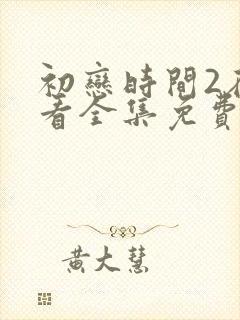 初戀時間2在
看全集免費
黃大慧